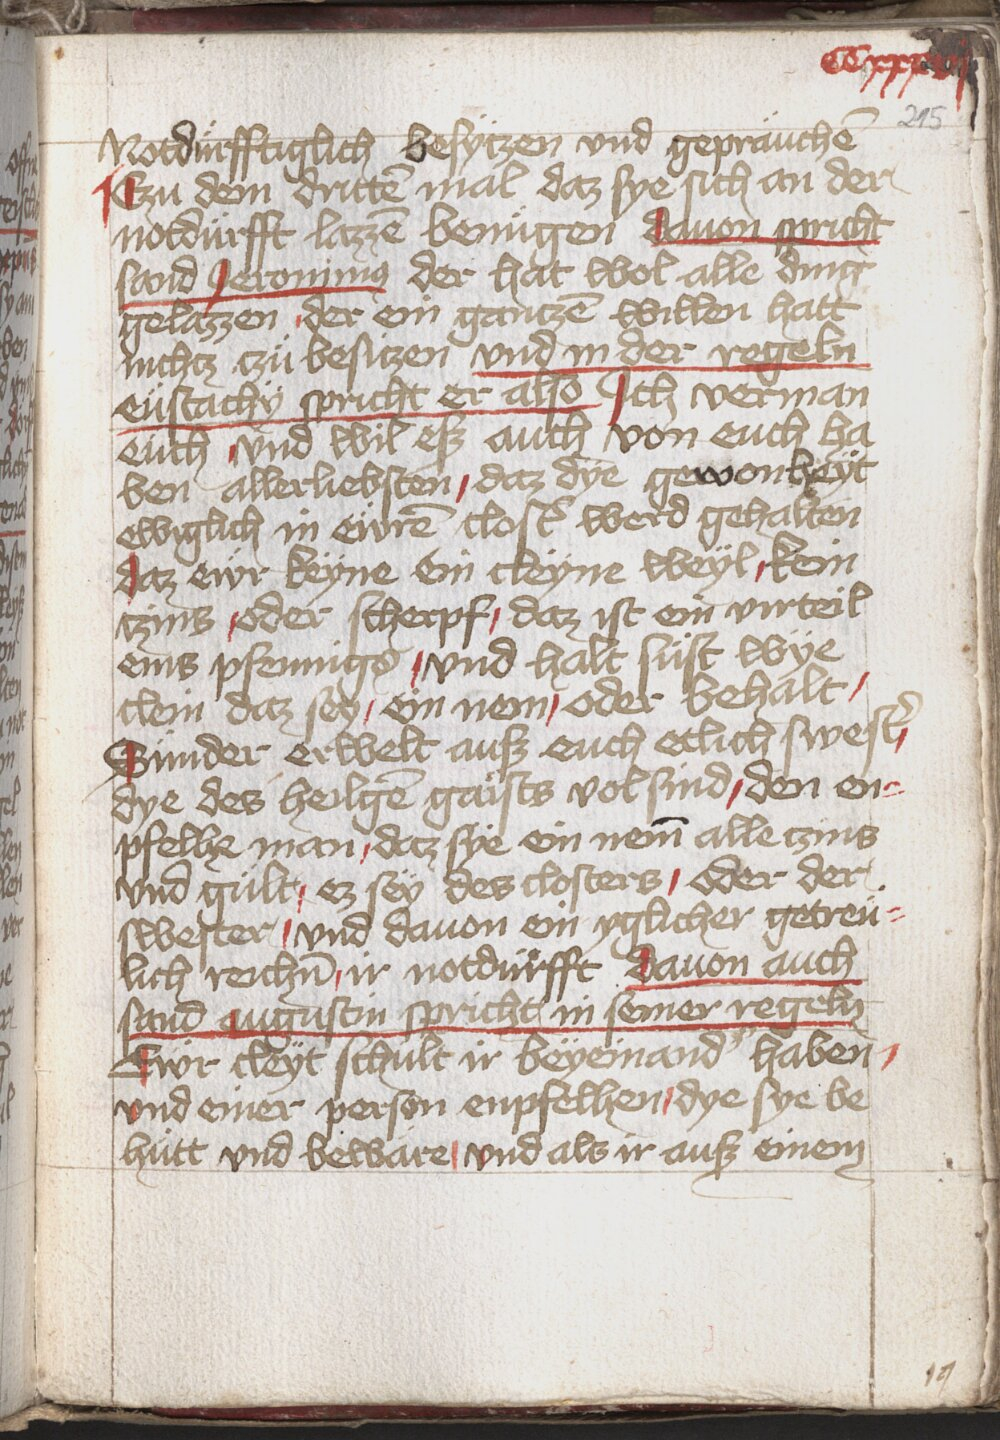 CCxxxvj
215
Notdürfftiglich besytzen und gepräuchē
Czu dem drittē mal daz sye sich an der
notdürfft lazzē benügen Dauon spricht
sand Jeronimꝰ der hat wol alle ding
gelazzen der ein gantzē willen hatt
nichtz czü besitzen vnd in der regeln
eüstachÿ spricht er also Jch verman
euch vnd wil eß auch von euch ha
ben allerliebsten daz dÿe gewonheÿt
ewiglich in ewrē clostˀ werd gehalten
Daz ewr keÿne ein cleÿne weÿl kein
czins oder scherpf daz ist ein virteil
eins pfennigs vnd halt süst wÿe
clein daz seÿ ein nem oder behalt
Sünder erwelt auß euch etlich swestˀ
dÿe des heilgē gaists vol sind den en=
pfelhe man daz sÿe ein nem̄ alle czins
vnd gült ez seÿ des closters oder der
swester vnd dauon ein yglicher getreü=
lich reichn̄ ir notdürfft Dauon auch
sand augustin spricht in seiner regeln
Ewr cleÿt schult ir beÿeinandˀ haben
vnd einer person enpfelhen dÿe sÿe be
hütt vnd beware vnd als ir auß einem